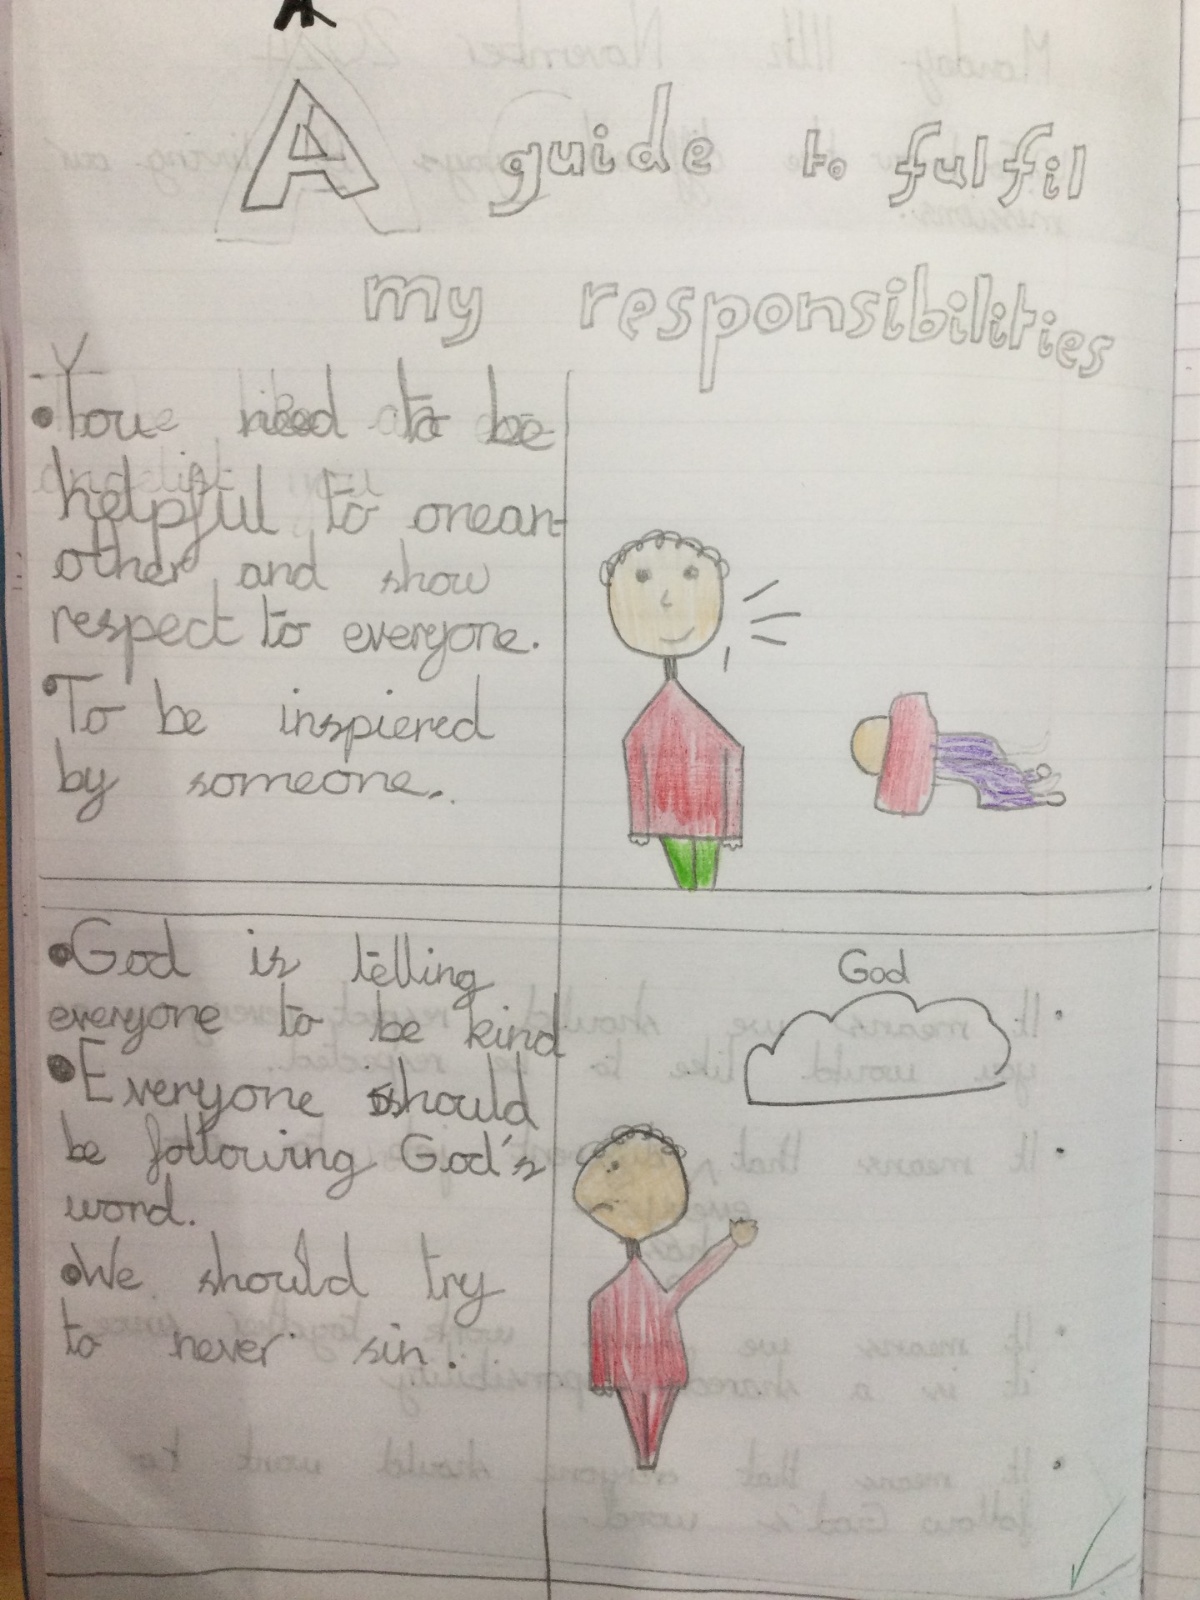 A guide to fulfil
my responsibilities
• You need to be
helpful to onean-
other and show
respect to everyone.
• To be inspiered
by someone.
• God is telling
everyone to be kind
• Everyone should
be following God's
word.
• We should try
to never sin.
God